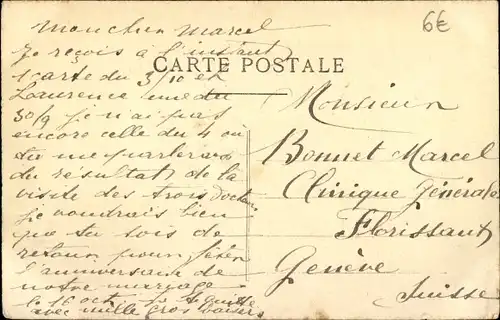 mon chér Marcel
6€
Je reçois à l'instant
1 carte du 3/10 et
CARTE POSTALE
Laurence une du
30/9 je n'ai pas
encore celle du 4 où
tu me parleras
du résultat de la
visite des trois docteurs
je voudrais bien
que tu sois de
retour pour fêter
l'anniversaire de
notre mariage
le 16 oct. je te quitte
avec mille gros baisers
Monsieur
Bonnet Marcel
Clinique Générale
Florissant
Genève
Suisse